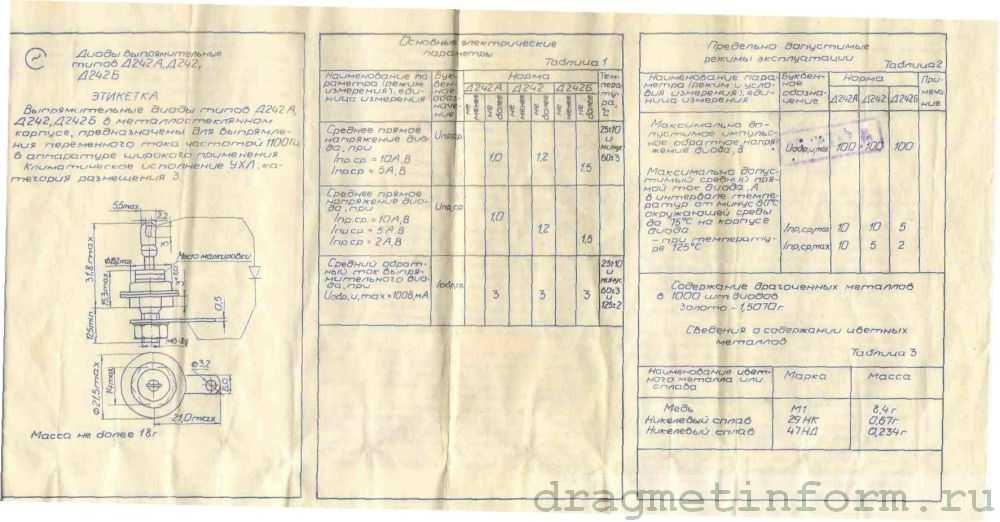 Диоды выпрямительные
типов Д242А, Д242,
Д242Б
ЭТИКЕТКА
Выпрямительные диоды типов Д242А,
Д242, Д242Б в металлостеклянном
корпусе, предназначены для выпрямле-
ния переменного тока частотой 1100Гц
в аппаратуре широкого применения.
Климатическое исполнение УХЛ, ка-
тегория размещения 3.
5,5max
2,2
3
31,8max
15,3max
12,5min
Место маркировки
0,5
М6-8g
⌀21,5max
⌀3,2
6,0
21,0max
Масса не более 18г
Основные электрические
параметры
Таблица 1
Наименование па-
раметра (режим
измерения), еди-
ница измерения
Бук-
вен-
ное
обоз-
наче-
ние
Норма
Д242А Д242 Д242Б
не менее не более не менее не более не менее не более
Тем-
пера-
ту-
ра,
°С
Среднее прямое
напряжение дио-
да, при
Iпр.ср. = 10А, В 1,0 1,2
Iпр.ср. = 5А, В 1,5
Uпр.ср.
25±10
и
минус
60±3
Среднее прямое
напряжение дио-
да, при
Iпр.ср. = 10А, В 1,0
Iпр.ср. = 5А, В 1,2
Iпр.ср. = 2А, В
Uпр.ср.
Средний обрат-
ный ток выпря-
мительного дио-
да, при
Uобр,и,max = 100В, мА 3 3 3
25±10
и
минус
60±3
и
125±2
Предельно допустимые
режимы эксплуатации
Таблица 2
Наименование пара-
метра (режим и усло-
вия измерения), еди-
ница измерения
Буквен-
ное
обозна-
чение
Норма
Д242А Д242 Д242Б
При-
меча-
ние
Максимально до-
пустимое импульс-
ное обратное напря-
жение диода, В Uобр,и,max 100 100 100
Максимально допус-
тимый средний пря-
мой ток диода, А
в интервале темпе-
ратур от минус 60°С
окружающей среды
до 75°С на корпусе
диода Iпр,ср,max 10 10 5
- при температу-
ре 125°С Iпр,ср,max 10 5 2
Содержание драгоценных металлов
в 1000 шт. диодов
Золото - 1,5070г.
Сведения о содержании цветных
металлов
Таблица 3
Наименование цвет-
ного металла или
сплава
Марка Масса
Медь М1 8,4г
Никелевый сплав 29 НК 0,67г
Никелевый сплав 47 НД 0,234г
dragmetinform.ru